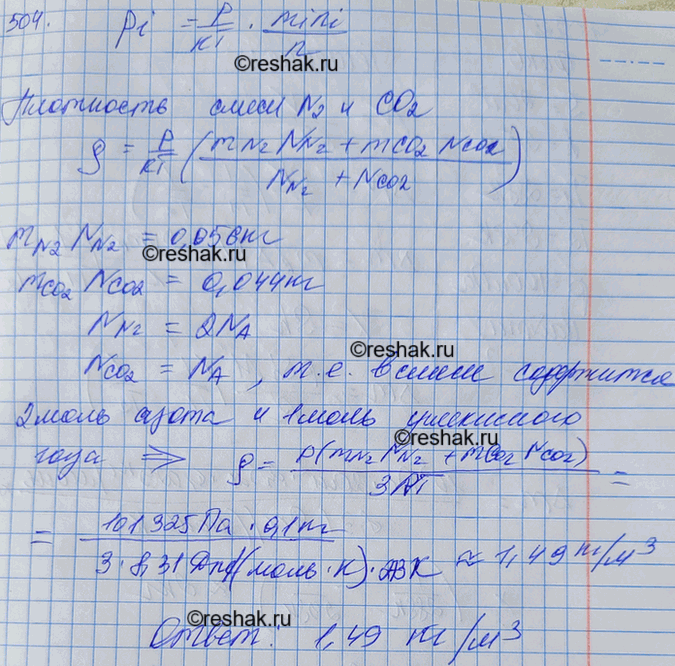 504. Pi = P/кТ · mini/n
©reshak.ru
Плотность смеси N₂ и CO₂
ρ = P/кТ (mN₂ NN₂ + mCO₂ NCO₂ / NN₂ + NCO₂)
mN₂ NN₂ = 0,056кг
©reshak.ru
mCO₂ NCO₂ = 0,044кг
NN₂ = 2NA
©reshak.ru
NCO₂ = NA, т.е. в смеси содержится
2моль азота и 1моль углекислого
газа ⇒ ρ = P(mN₂ NN₂ + mCO₂ NCO₂) / 3RT =
= 101 325 Па · 0,1кг / 3 · 8,31 Дж/(моль·К) · 273К ≈ 1,49 кг/м³
©reshak.ru
Ответ: 1,49 кг/м³